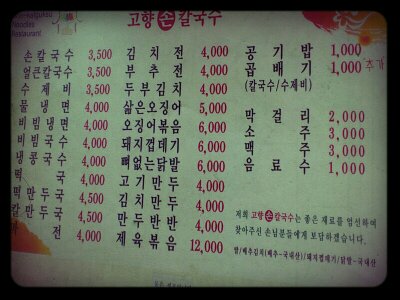 고향 손 칼국수
Son-kalguksu
Noodles
Restaurant
손칼국수 3,500
얼큰칼국수 3,500
수제비 3,500
물냉면 4,000
비빔냉면 4,000
비빔국수 4,000
냉콩국수 4,000
떡국 4,000
떡만두국 4,500
칼만두국 4,500
전 4,000
김치전 4,000
부추전 4,000
두부김치 4,000
삶은오징어 5,000
오징어볶음 6,000
돼지껍데기 6,000
뼈없는닭발 6,000
고기만두 4,000
김치만두 4,000
만두반반 4,000
제육볶음 12,000
공기밥 1,000
곱배기 1,000 추가
(칼국수/수제비)
막걸리 2,000
소주 3,000
맥주 3,000
음료수 1,000
저희 고향손칼국수는 좋은 재료를 엄선하여
찾아주신 손님분들에게 보답하겠습니다.
쌀/배추김치(배추-국내산)/돼지껍데기/닭발-국내산